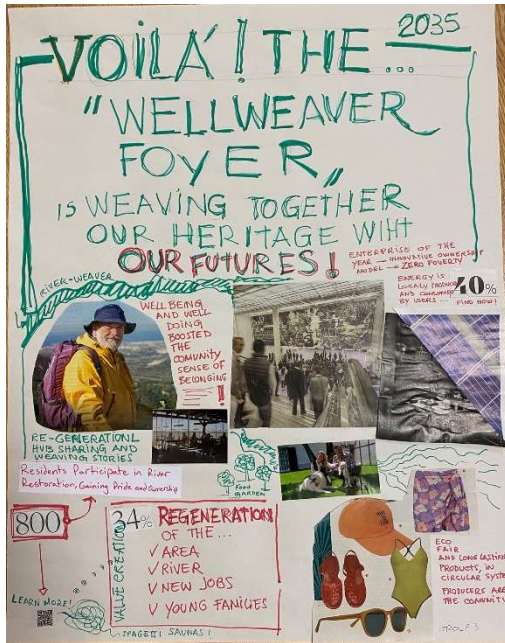 2035
VOILÀ! THE...
"WELLWEAVER
FOYER„
IS WEAVING TOGETHER
OUR HERITAGE WIHT
OUR FUTURES!
ENTERPRISE OF THE
YEAR – INNOVATIVE OWNERSHIP
MODEL → ZERO POVERTY
ENERGY IS
LOCALY PRODUCED
AND CONSUMED
BY USERS...
70%
FIND HOW!
RIVER-WEAVER
WELLBEING
AND WELL
DOING
BOOSTED
THE
COMUNITY
SENSE OF
BELONGING
!
RE-GENERATIONL
HUB SHARING AND
WEAVING STORIES
Residents Participate in River
Restoration, Gaining Pride and Ownership
FOOD
GARDEN
800
LEARN MORE!
VALUE CREATION
34% REGENERATION
OF THE...
✓ AREA
✓ RIVER
✓ NEW JOBS
✓ YOUNG FAMILIES
SPAGETTI SAUNAS!
ECO
FAIR
AND LONG LASTING
PRODUCTS, IN
CIRCULAR SYSTEM
PRODUCERS ARE
THE COMUNITY